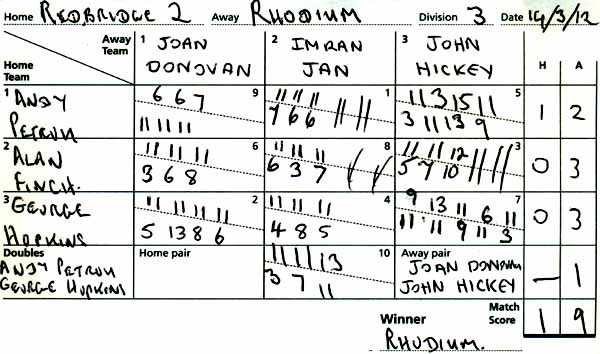 Home REDBRIDGE 2 Away RHODIUM Division 3 Date 14/3/12
Away Team 1 JOAN DONOVAN 2 IMRAN JAN 3 JOHN HICKEY H A
Home Team
1 ANDY PETRUM 9 1 5 1 2
6 6 7 11 11 11 11 3 15 11
11 11 11 7 6 6 3 11 13 9
2 ALAN FINCH. 6 8 3 0 3
11 11 11 11 11 11 11 11 12
3 6 8 6 3 7 5 7 10
3 GEORGE HOPKINS 2 4 7 0 3
11 11 11 11 11 11 11 9 13 11 6 11
5 13 8 6 4 8 5 11 11 9 11 3
Doubles Home pair 10 Away pair
ANDY PETRUM 11 11 13 JOAN DONOVAN — 1
GEORGE HOPKINS 3 7 11 JOHN HICKEY
Match Score 1 9
Winner
RHODIUM.